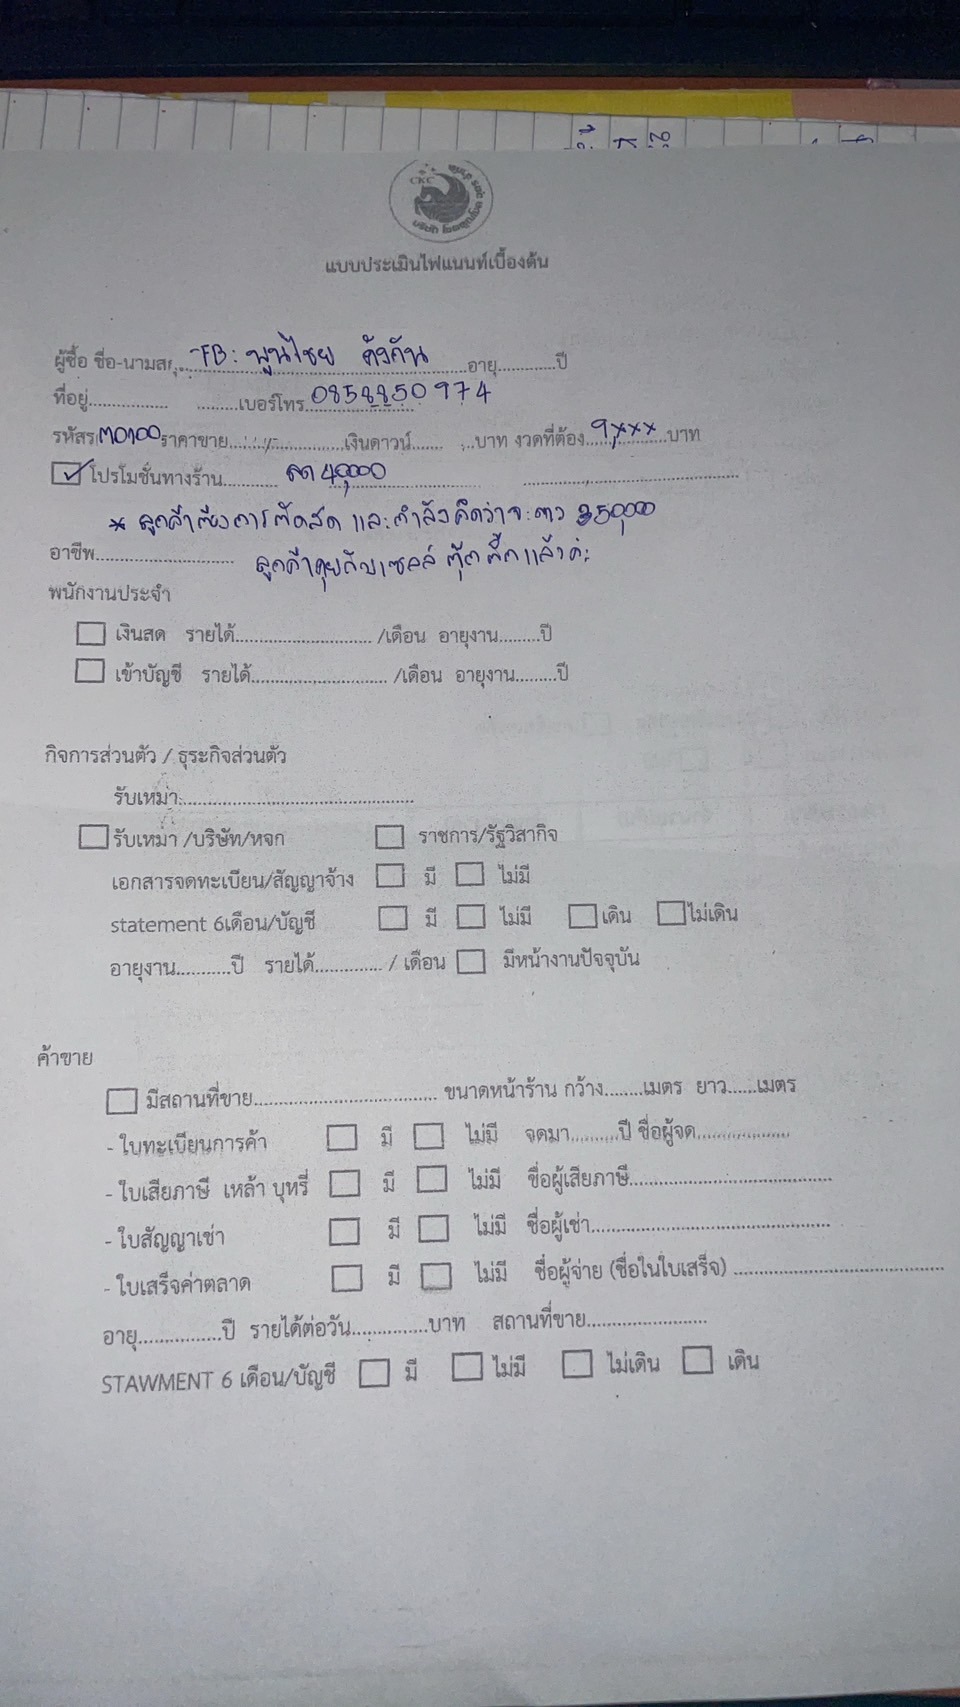 CKC
แบบประเมินไฟแนนท์เบื้องต้น
ผู้ซื้อ ชื่อ-นามสกุ...FB: พูนไชย ค้งคัน.......อายุ.............ปี
ที่อยู่................. .........เบอร์โทร..0858850974
รหัสรถM0100ราคาขาย........................เงินดาวน์...... ...บาท งวดที่ต้อง..9,xxx..บาท
โปรโมชั่นทางร้าน........... ลด 40,000
* ลูกค้าต้องการตัดสด และกำลังคิดว่าจะดาว 350,000
อาชีพ.............................. ลูกค้าคุยกับเซลล์ ตุ๊กติ๊กแล้วค่ะ
พนักงานประจำ
เงินสด รายได้............................. /เดือน อายุงาน.........ปี
เข้าบัญชี รายได้............................. /เดือน อายุงาน.........ปี
กิจการส่วนตัว / ธุระกิจส่วนตัว
รับเหมา..................................................
รับเหมา /บริษัท/หจก ราชการ/รัฐวิสากิจ
เอกสารจดทะเบียน/สัญญาจ้าง มี ไม่มี
statement 6เดือน/บัญชี มี ไม่มี เดิน ไม่เดิน
อายุงาน...........ปี รายได้.............. / เดือน มีหน้างานปัจจุบัน
ค้าขาย
มีสถานที่ขาย.................................... ขนาดหน้าร้าน กว้าง........เมตร ยาว......เมตร
- ใบทะเบียนการค้า มี ไม่มี จดมา..........ปี ชื่อผู้จด...................
- ใบเสียภาษี เหล้า บุหรี่ มี ไม่มี ชื่อผู้เสียภาษี........................................
- ใบสัญญาเช่า มี ไม่มี ชื่อผู้เช่า...............................................
- ใบเสร็จค่าตลาด มี ไม่มี ชื่อผู้จ่าย (ชื่อในใบเสร็จ) ..........................................
อายุ................ปี รายได้ต่อวัน...............บาท สถานที่ขาย........................
STAWMENT 6 เดือน/บัญชี มี ไม่มี ไม่เดิน เดิน